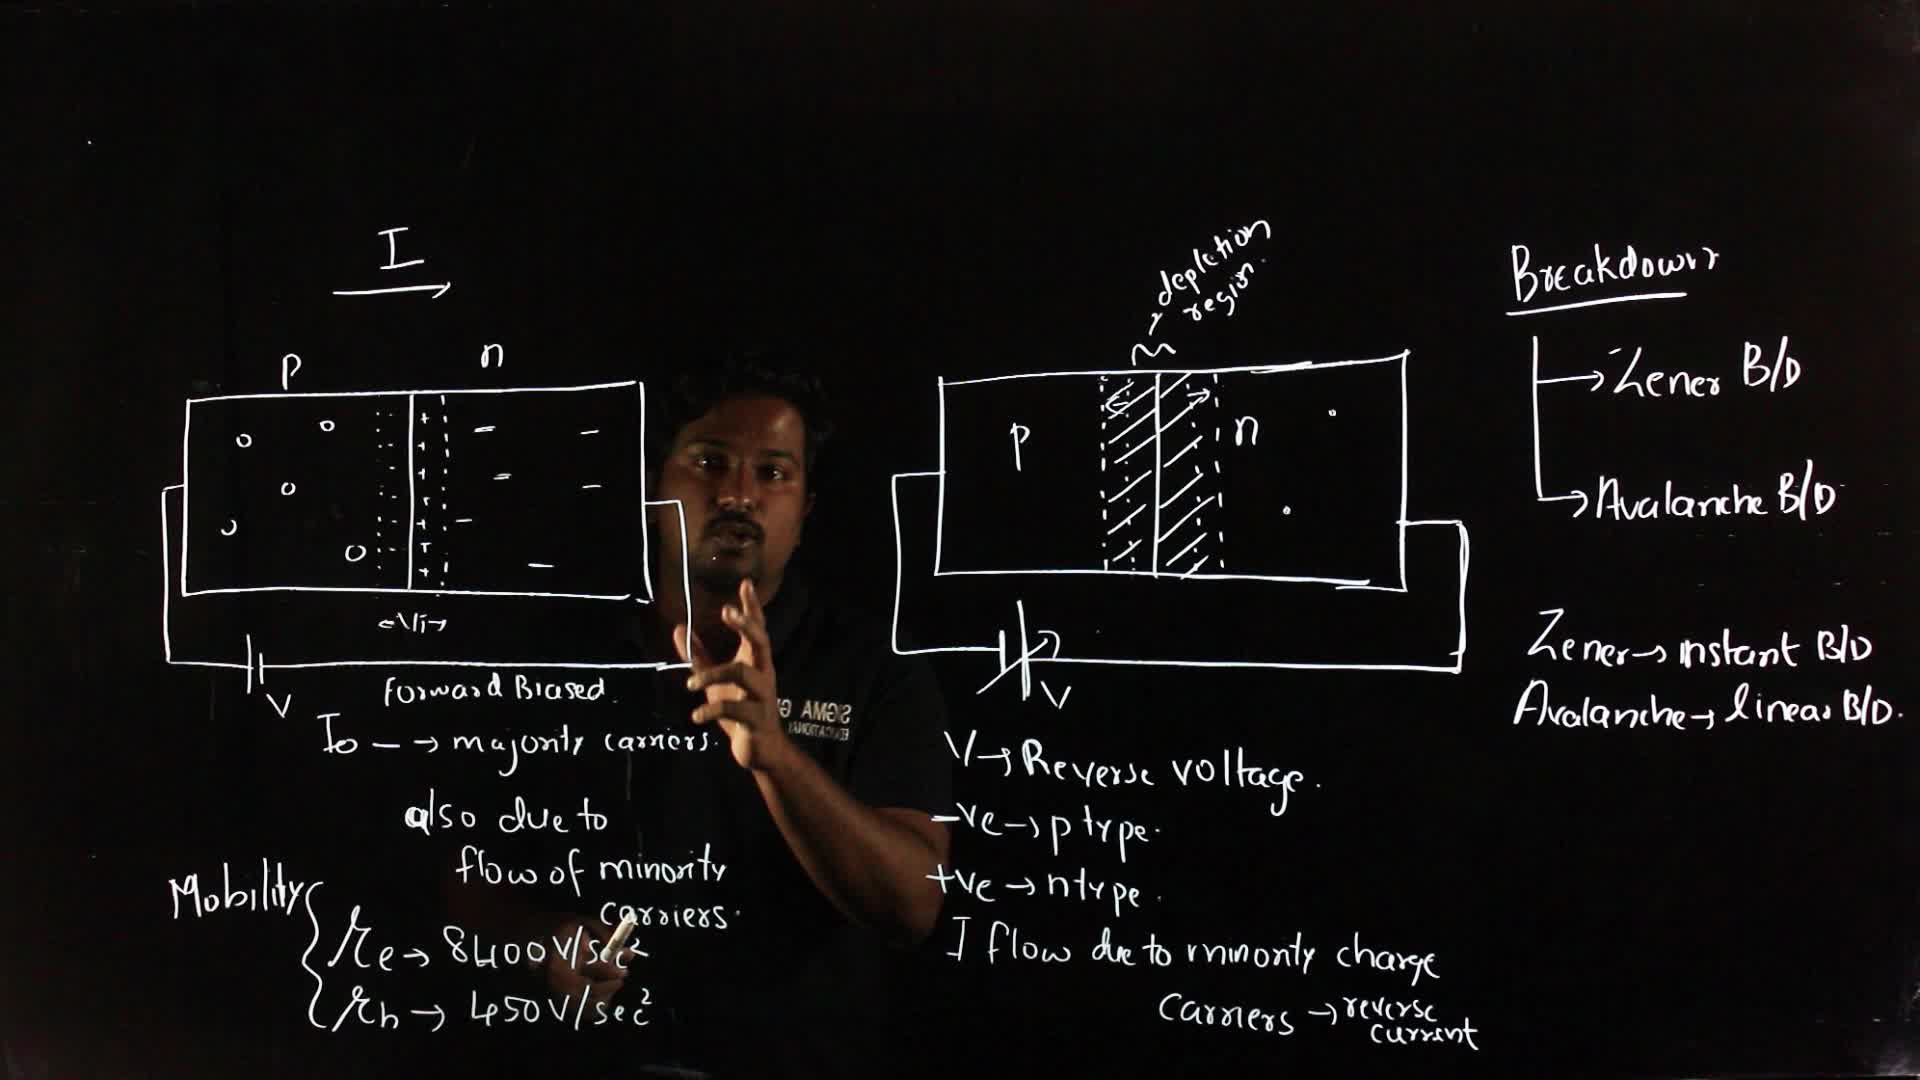 I
p n
Vi
V
Forward Biased.
Io — → majority carriers.
also due to
flow of minority
carriers.
Mobility
μe → 8400 V/sec²
μh → 450 V/sec²
SIGMA
EDUCATIONAL
depletion
region.
p n
V
V → Reverse voltage.
-ve → p type.
+ve → n type.
I flow due to minority charge
carriers → reverse
current
Breakdown
→ Zener B/D
→ Avalanche B/D
Zener → instant B/D
Avalanche → linear B/D.